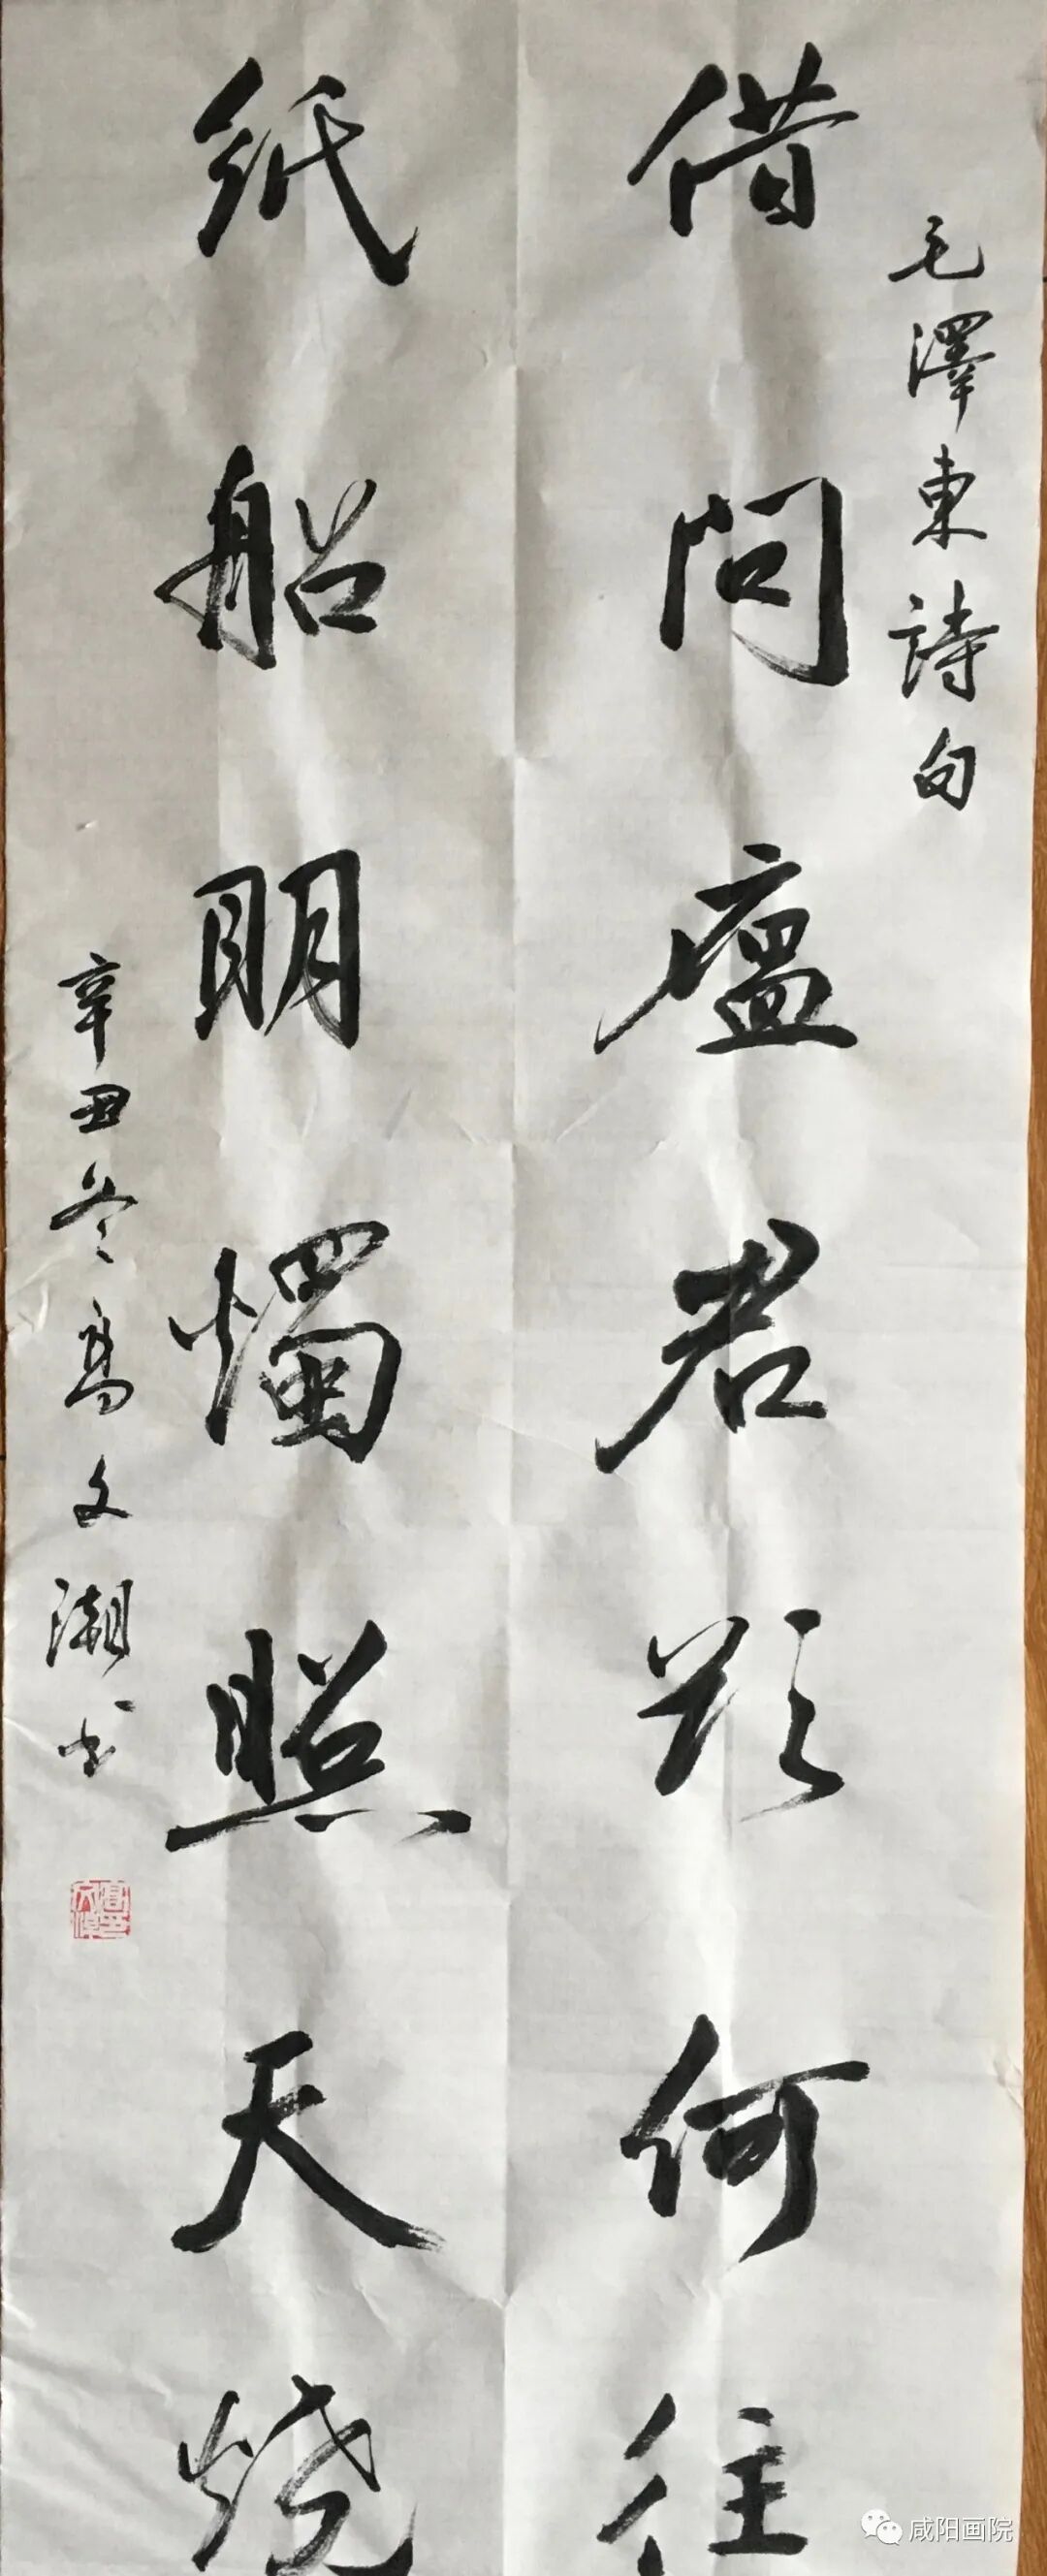 毛澤東詩句
借问瘟君欲何往
纸船明燭照天烧
辛丑冬高文潮书
咸阳画院